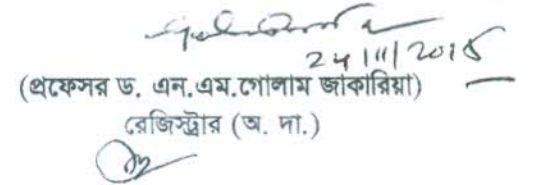 24/11/2015
(প্রফেসর ড. এন.এম.গোলাম জাকারিয়া)
রেজিস্ট্রার (অ. দা.)